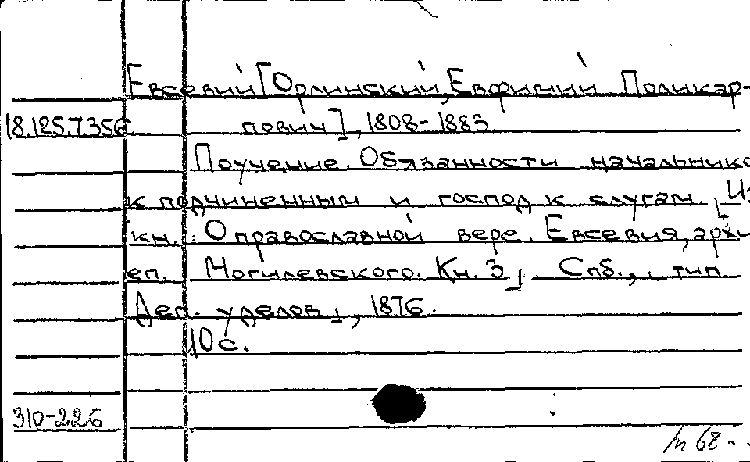 Евсевий [Орлинский, Евфимий Поликар-
18.185.7.356 пович], 1808-1883
Поучение. Обязанности начальнико
к подчиненным и господ к слугам. [Из
кн.: О православной вере. Евсевия, архи
еп. Могилевского. Кн. 3]. Спб., тип.
Деп. уделов], 1876.
10 с.
310-226